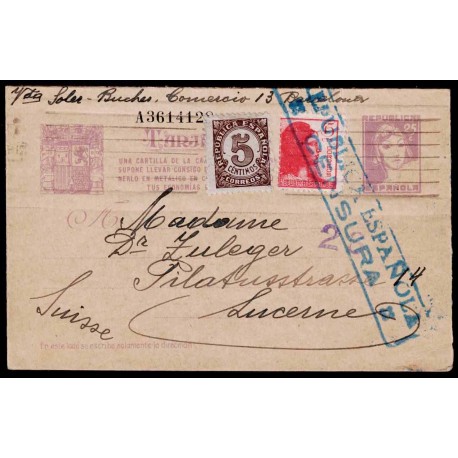 Vda Soler - Buches. Comercio 13 Barcelona
A3614129
REPUBLICA
ESPAÑOLA
UNA CARTILLA DE LA CA
SUPONE LLEVAR CONSIGO
NERLO EN METÁLICO EN C
TUS ECONOMIAS
REPUBLICA ESPAÑOLA
5
CENTIMOS
CORREOS
REPUBLICA ESPAÑOLA
CENSURA
2
Madame
Dr Zuleger
Pilatusstrasse 14
Lucerne
Suisse
En este lado se escribe solamente la dirección